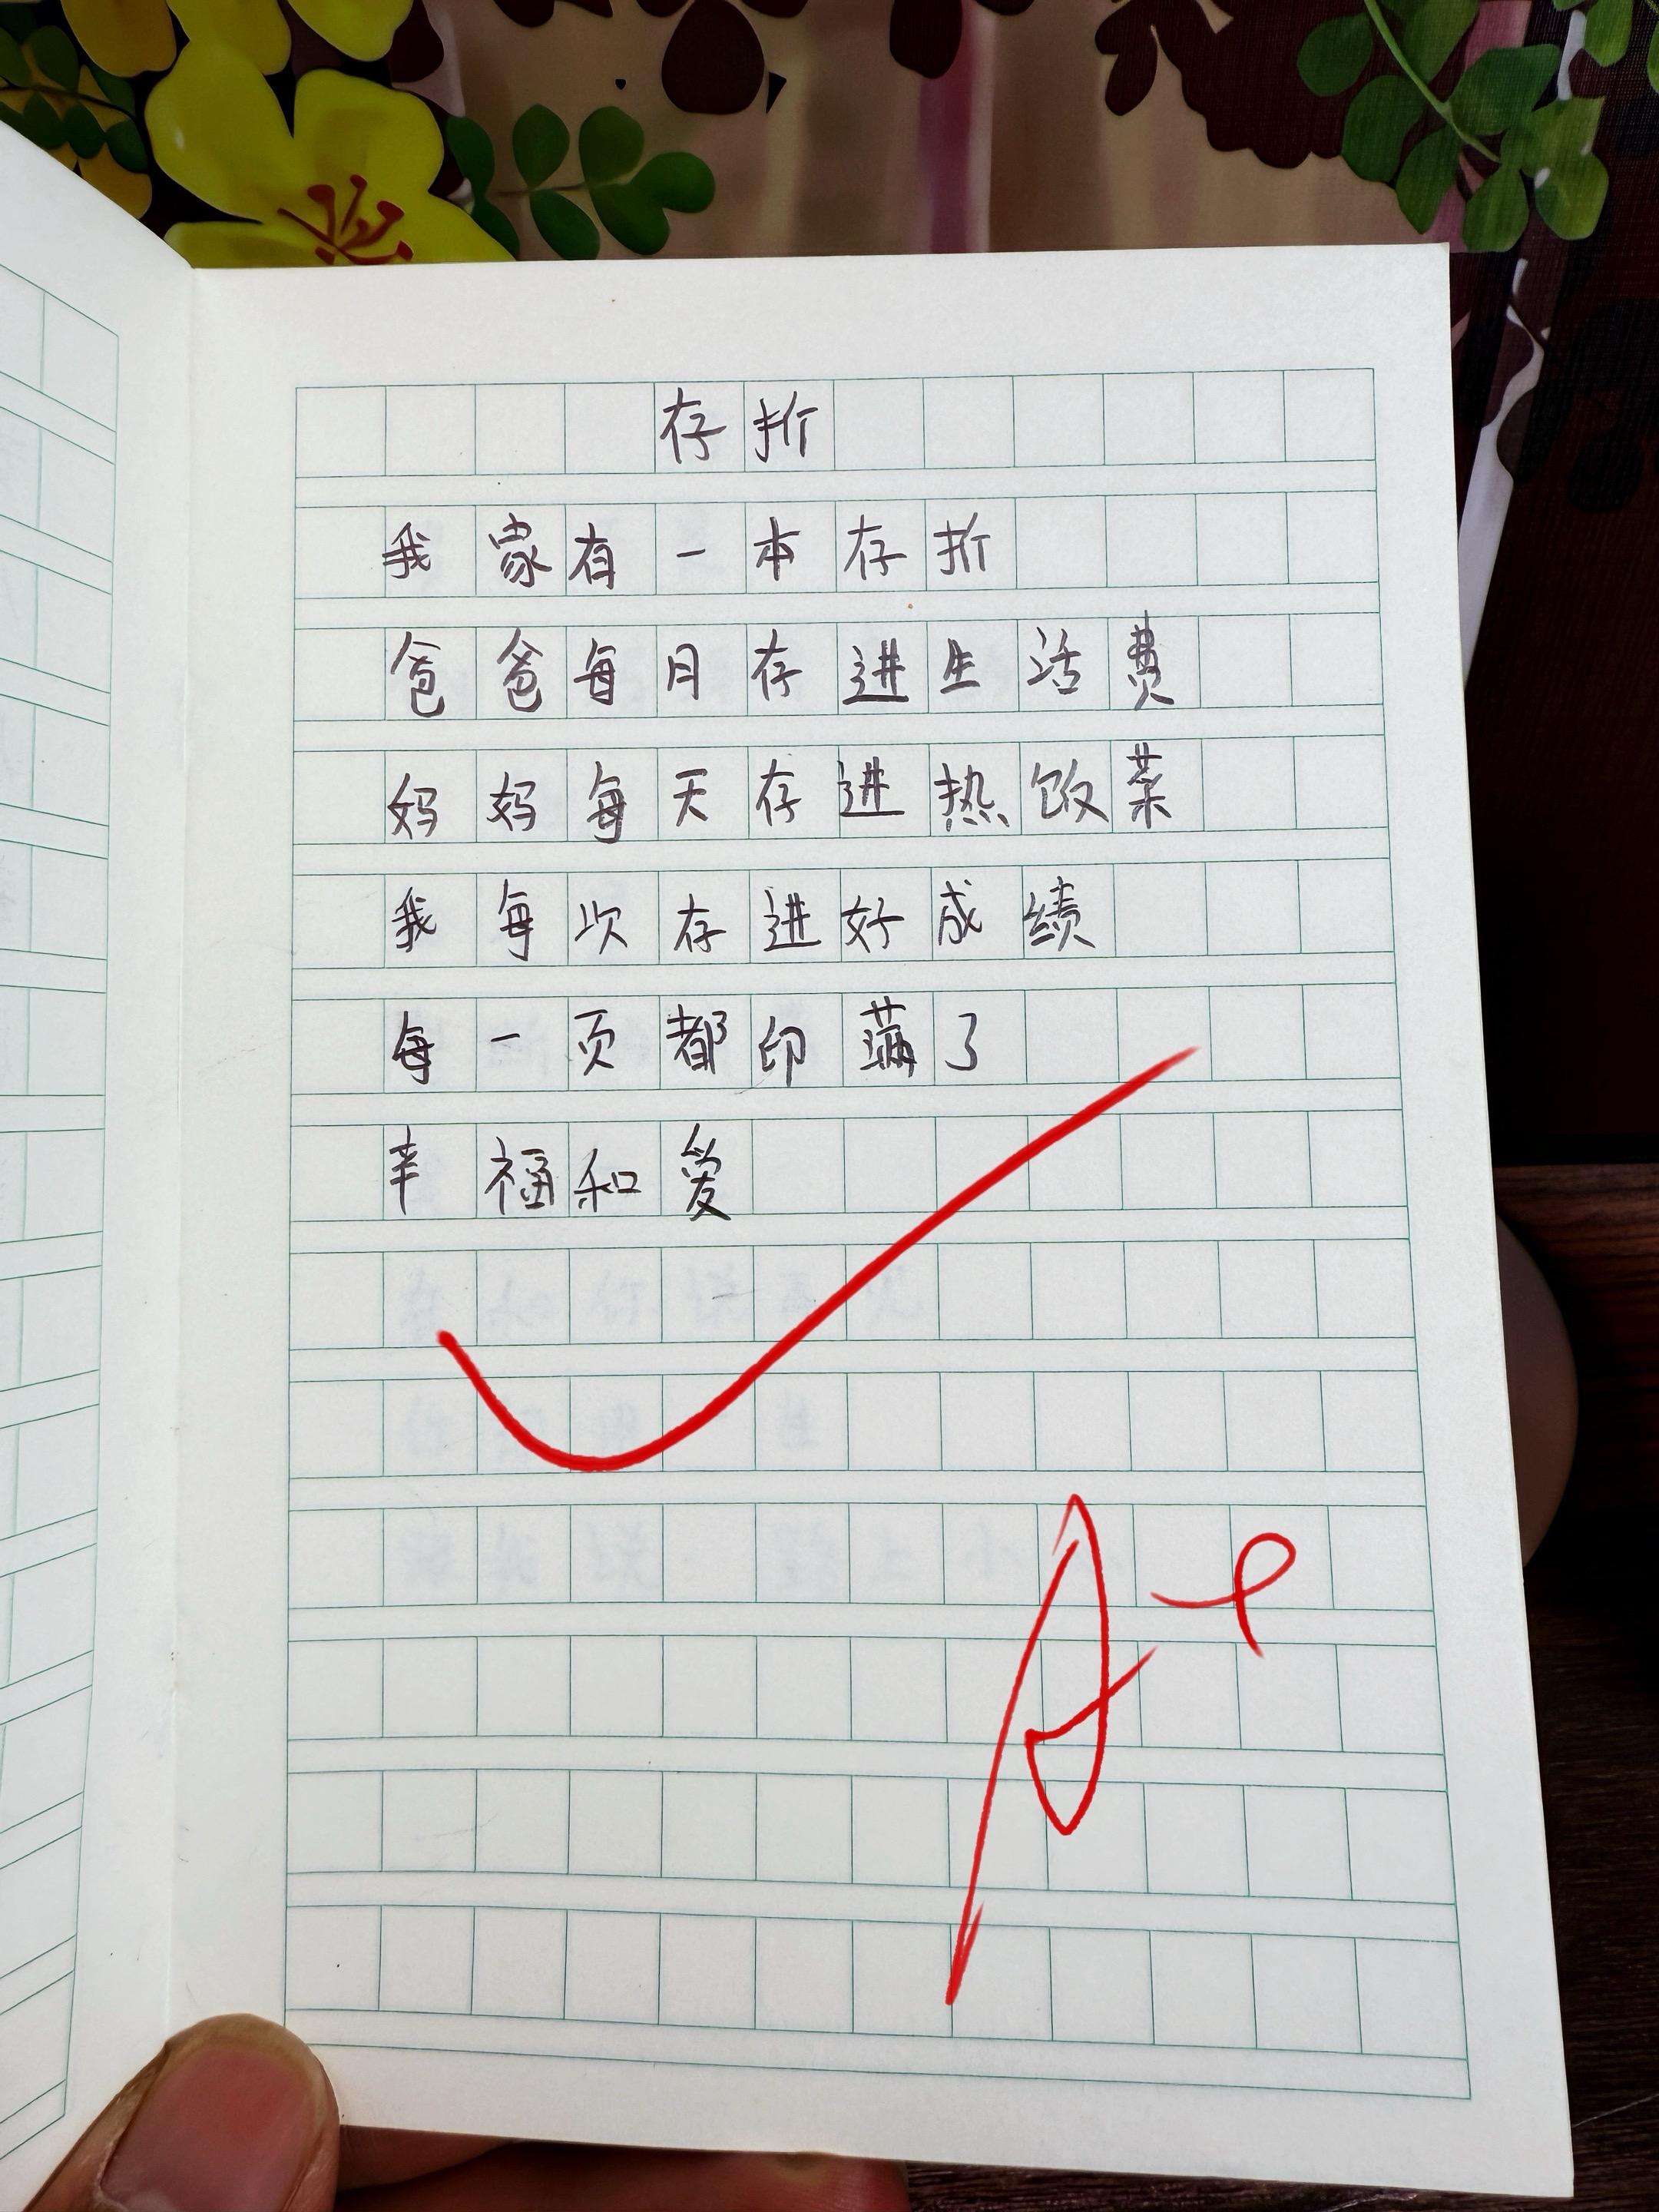 存折
我家有一本存折
爸爸每月存进生活费
妈妈每天存进热饭菜
我每次存进好成绩
每一页都印满了
幸福和爱
A+